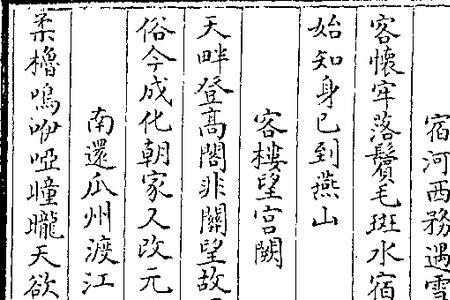 宿河西務遇雪
客懷牢落鬢毛斑水宿
始知身已到燕山
客樓望宮闕
天畔登高閣非關望故
俗今成化朝家又改元
南還瓜州渡江
柔櫓嗚咿啞曈曨天欲